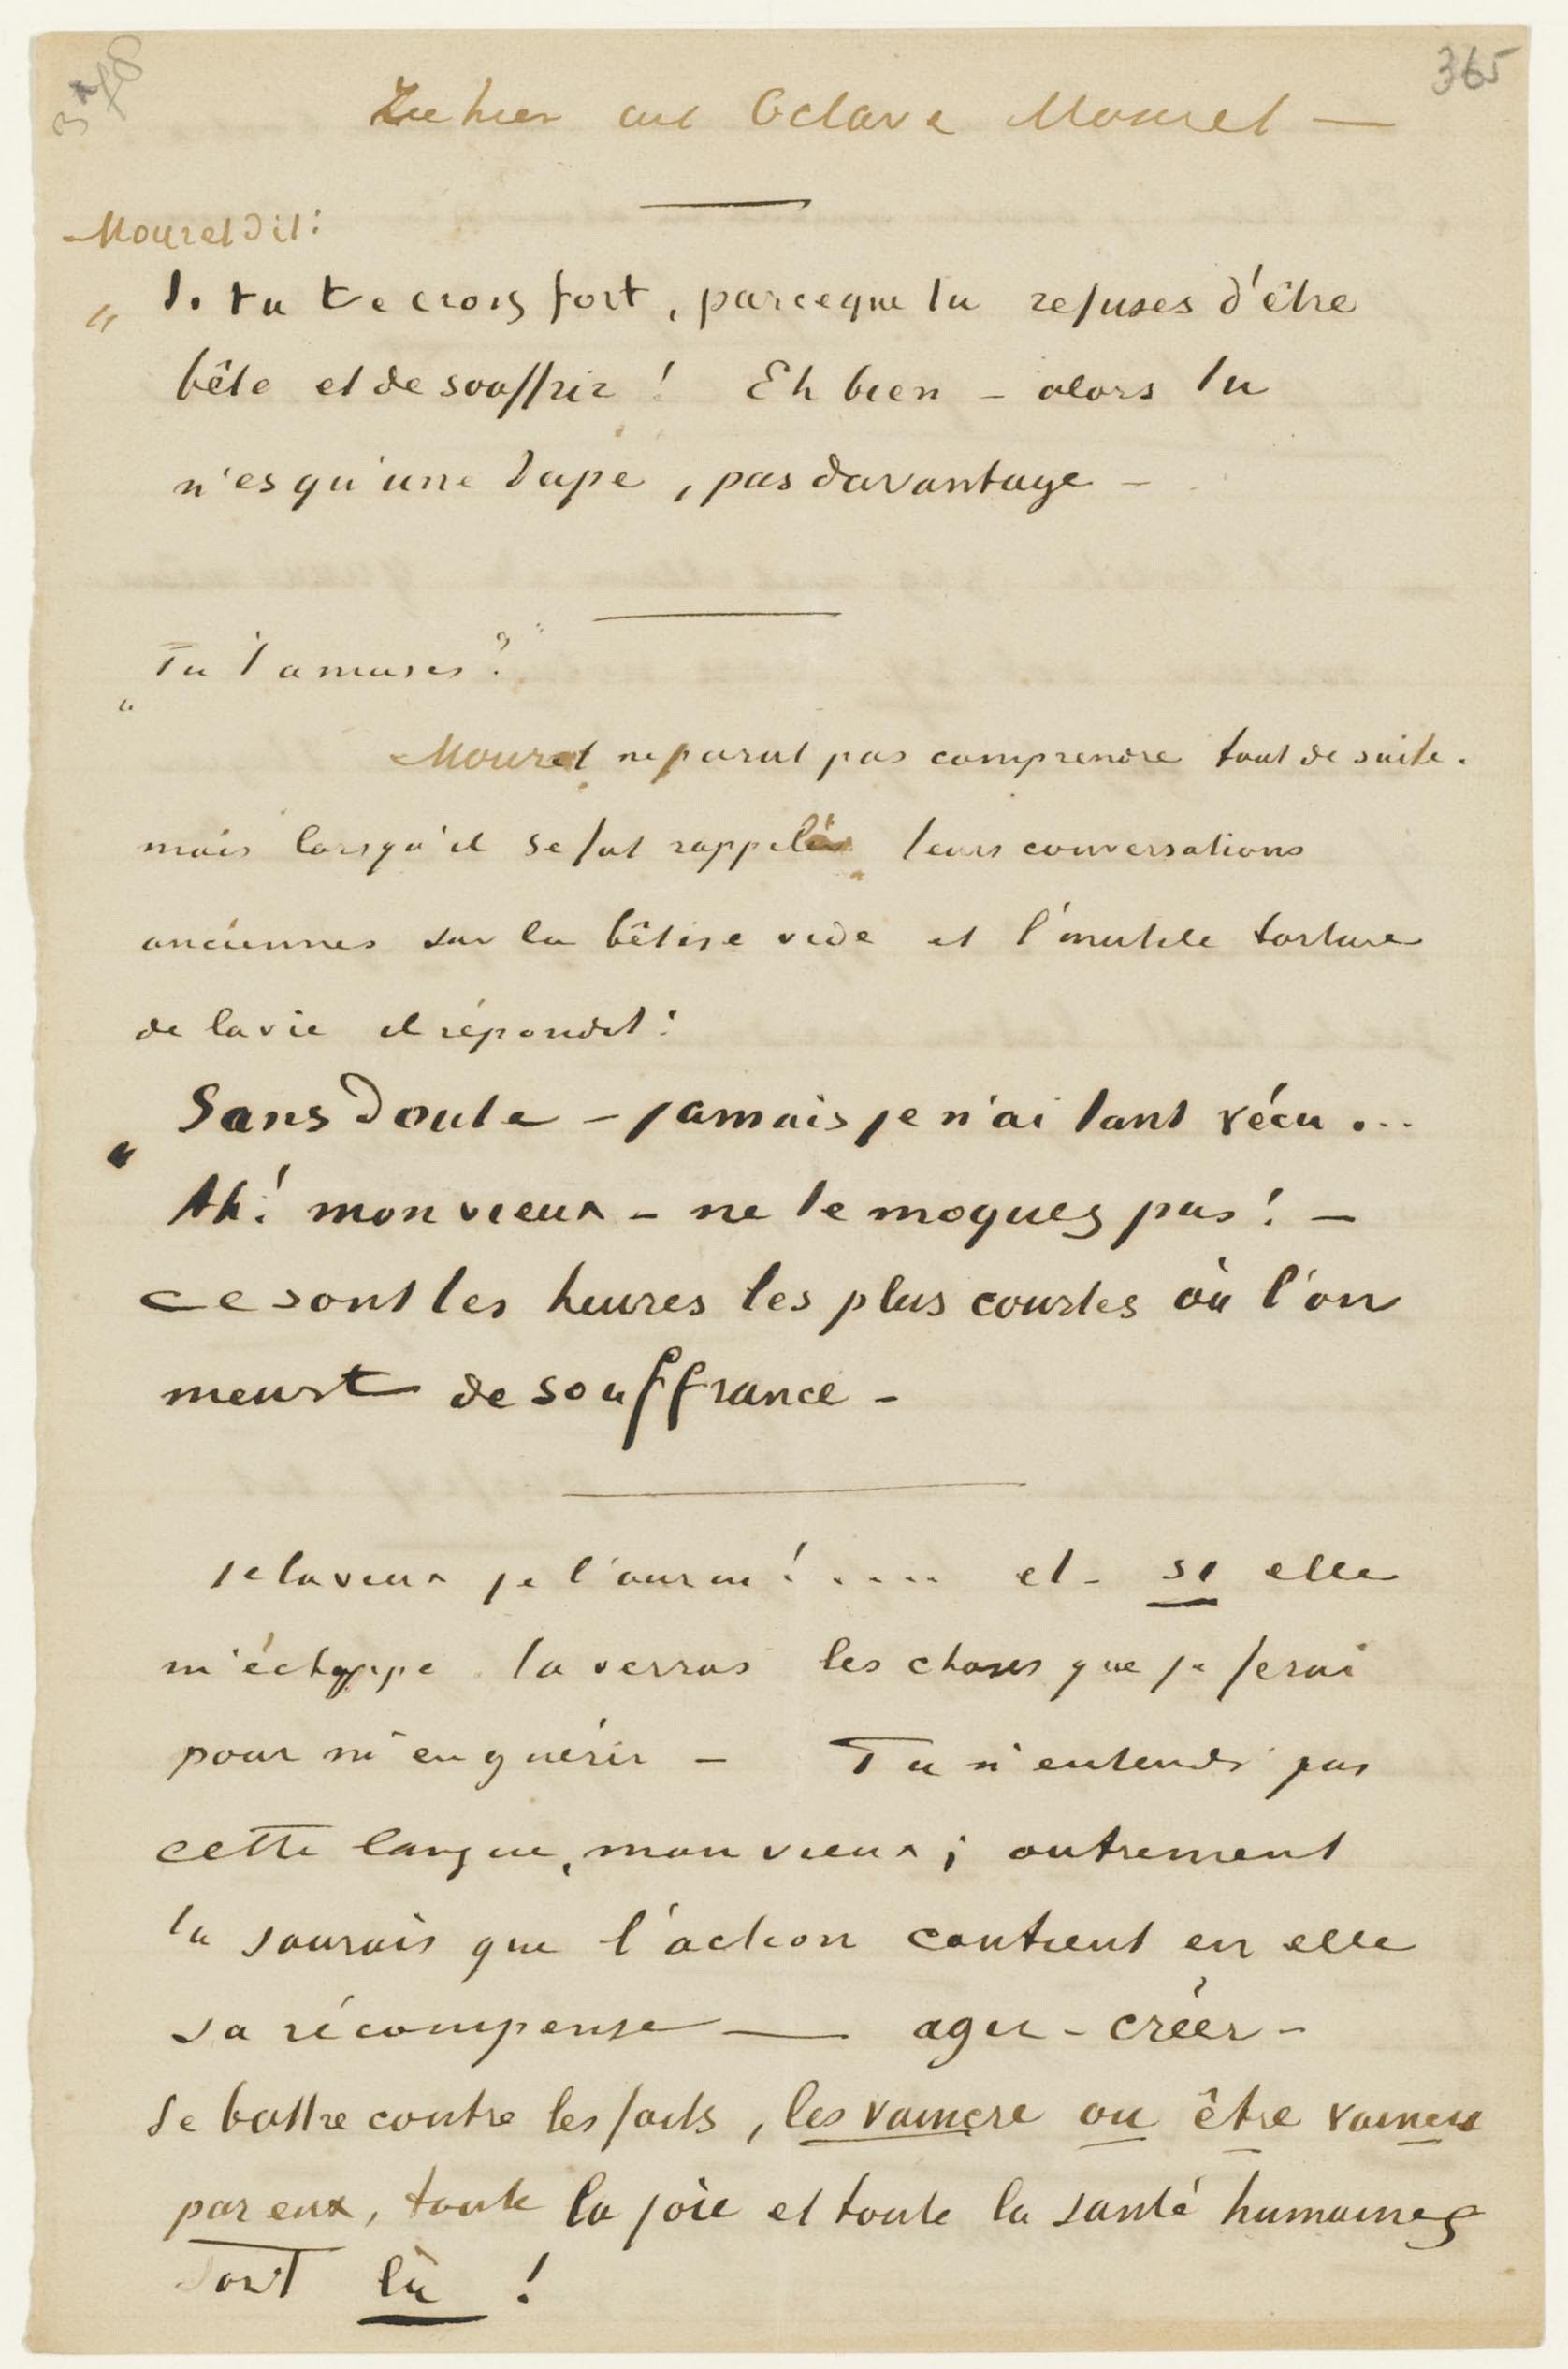 365
Ziehier aul Octave Mouret —
Mouret dit:
" Si tu te crois fort, parceque tu refuses d'être
bête et de souffrir! Eh bien – alors tu
n'es qu'une dupe, pas davantage –
" Tu t'amuses?"
Mouret ne parut pas comprendre tout de suite.
mais lorsqu'il se fut rappelé leurs conversations
anciennes sur la bêtise vide et l'inutile torture
de la vie il répondit:
" Sans doute – jamais je n'ai tant vécu ...
Ah! mon vieux – ne te moques pas! –
ce sont les heures les plus courtes où l'on
meurt de souffrance –
Je la veux je l'aurai! .... et – si elle
m'échappe tu verras les choses que je ferai
pour m'en guérir – Tu n'entends pas
cette langue, mon vieux; autrement
tu saurais que l'action contient en elle
sa récompense — agir – créer –
Se battre contre les faits, les vaincre ou être vaincu
par eux, toute la joie et toute la santé humaines
sont là!